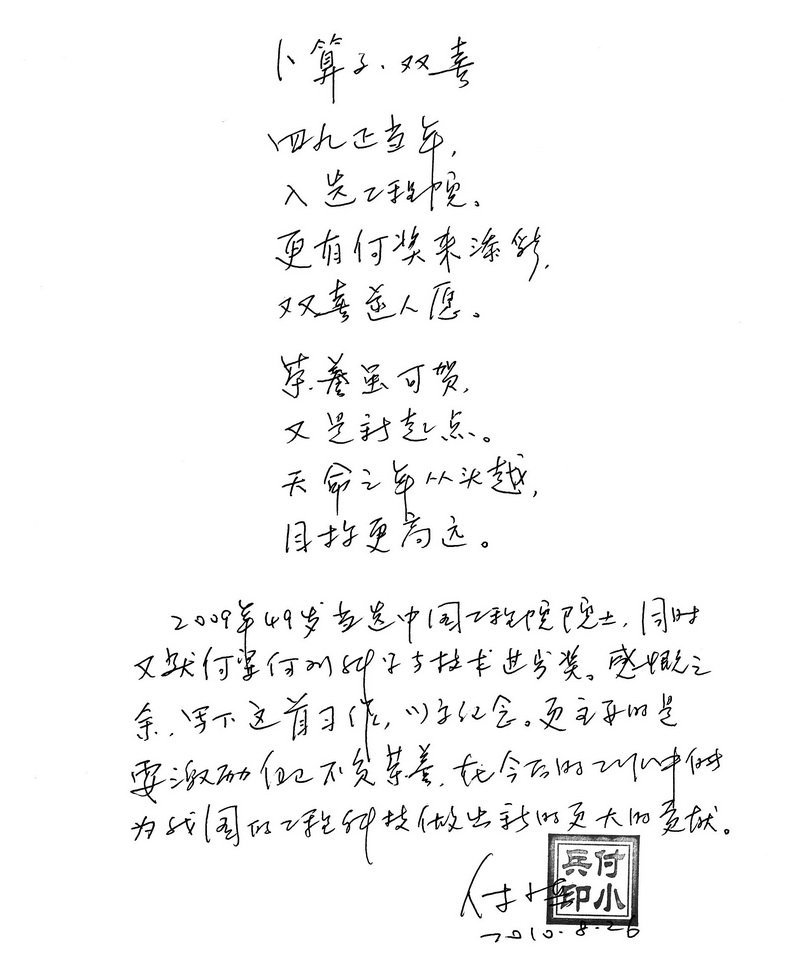 卜算子·双喜
四九正当年,
入选工程院。
更有何奖来添彩,
双喜遂人愿。
荣誉虽可贺,
又是新起点。
天命之年从头越,
目标更高远。
2009年49岁当选中国工程院院士,同时
又获何梁何利科学与技术进步奖。感慨之
余,写下这首习作,以为纪念。更主要的是
要激励自己不负荣誉,在今后的工作中
为我国的工程科技做出新的更大的贡献。
付小兵
付小兵印
2010.8.26